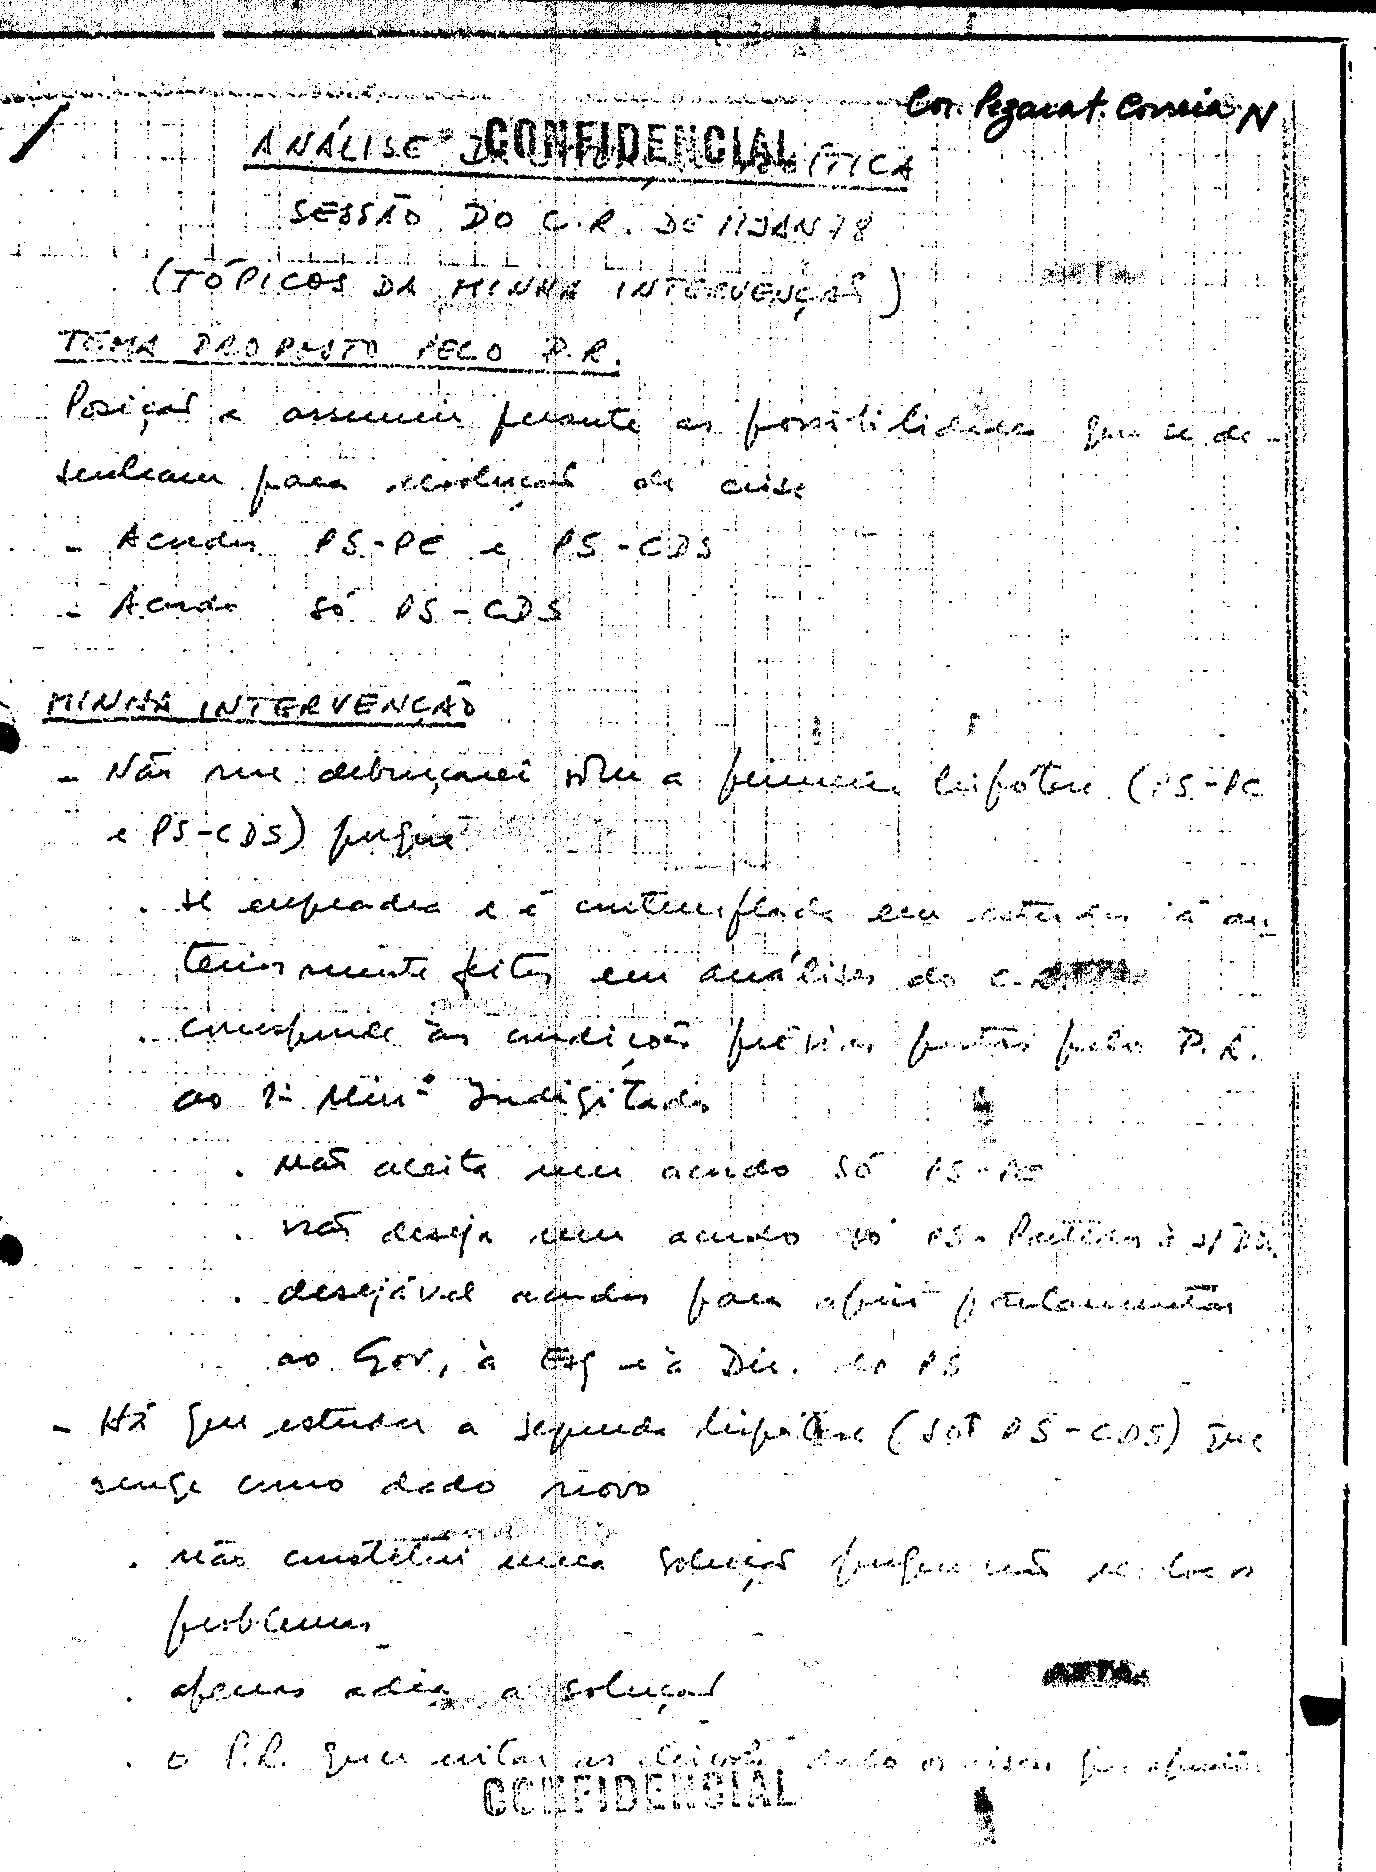 Cor. Pezarat Correia N
CONFIDENCIAL
ANÁLISE DA POLÍTICA
SESSÃO DO C.R. DE 11JAN78
(TÓPICOS DA MINHA INTERVENÇÃO)
TEMA PROPOSTO PELO P.R.
Posição a assumir perante as possibilidades que se de-
senham para resolução da crise
- Acordos PS-PC e PS-CDS
- Acordo só PS-CDS
MINHA INTERVENÇÃO
- Não me debruçarei sobre a primeira hipótese (PS-PC
e PS-CDS) porque
. se enquadra e é contemplada em estudos já an-
teriormente feitos em análises do C.R.
. corresponde às condições prévias postas pelo P.R.
ao 1º Minº Indigitado
. não aceita um acordo só PS-PC
. não deseja um acordo só PS-Partidos à sua Dir.
. desejável acordos para apoio parlamentar
ao Gov, à Esq e à Dir. do PS
- Há que estudar a segunda hipótese (só PS-CDS) que
surge como dado novo
. não constitui uma solução porque não resolve os
problemas
. apenas adia a solução
. o P.R. quer evitar as eleições dado os riscos que
CONFIDENCIAL